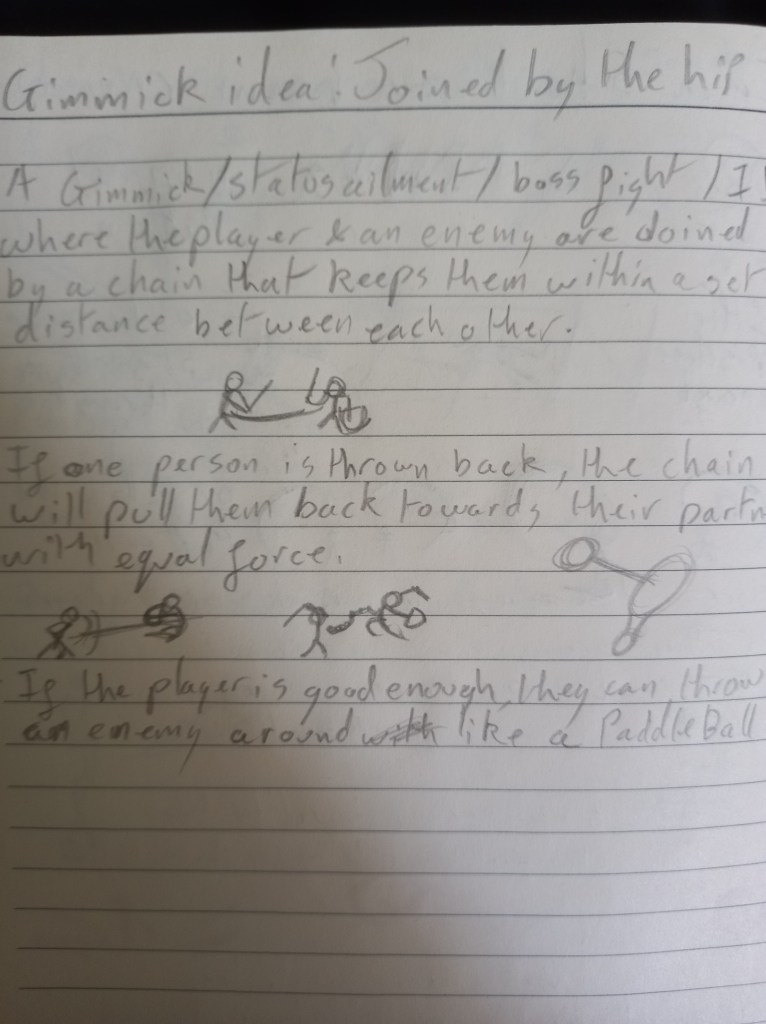 Gimmick idea: Joined by the hip
A Gimmick/status ailment/boss fight/I
where the player & an enemy are doined
by a chain that keeps them within a set
distance between each other.
If one person is thrown back, the chain
will pull them back towards their partn
with equal force.
If the player is good enough, they can throw
an enemy around like a PaddleBall